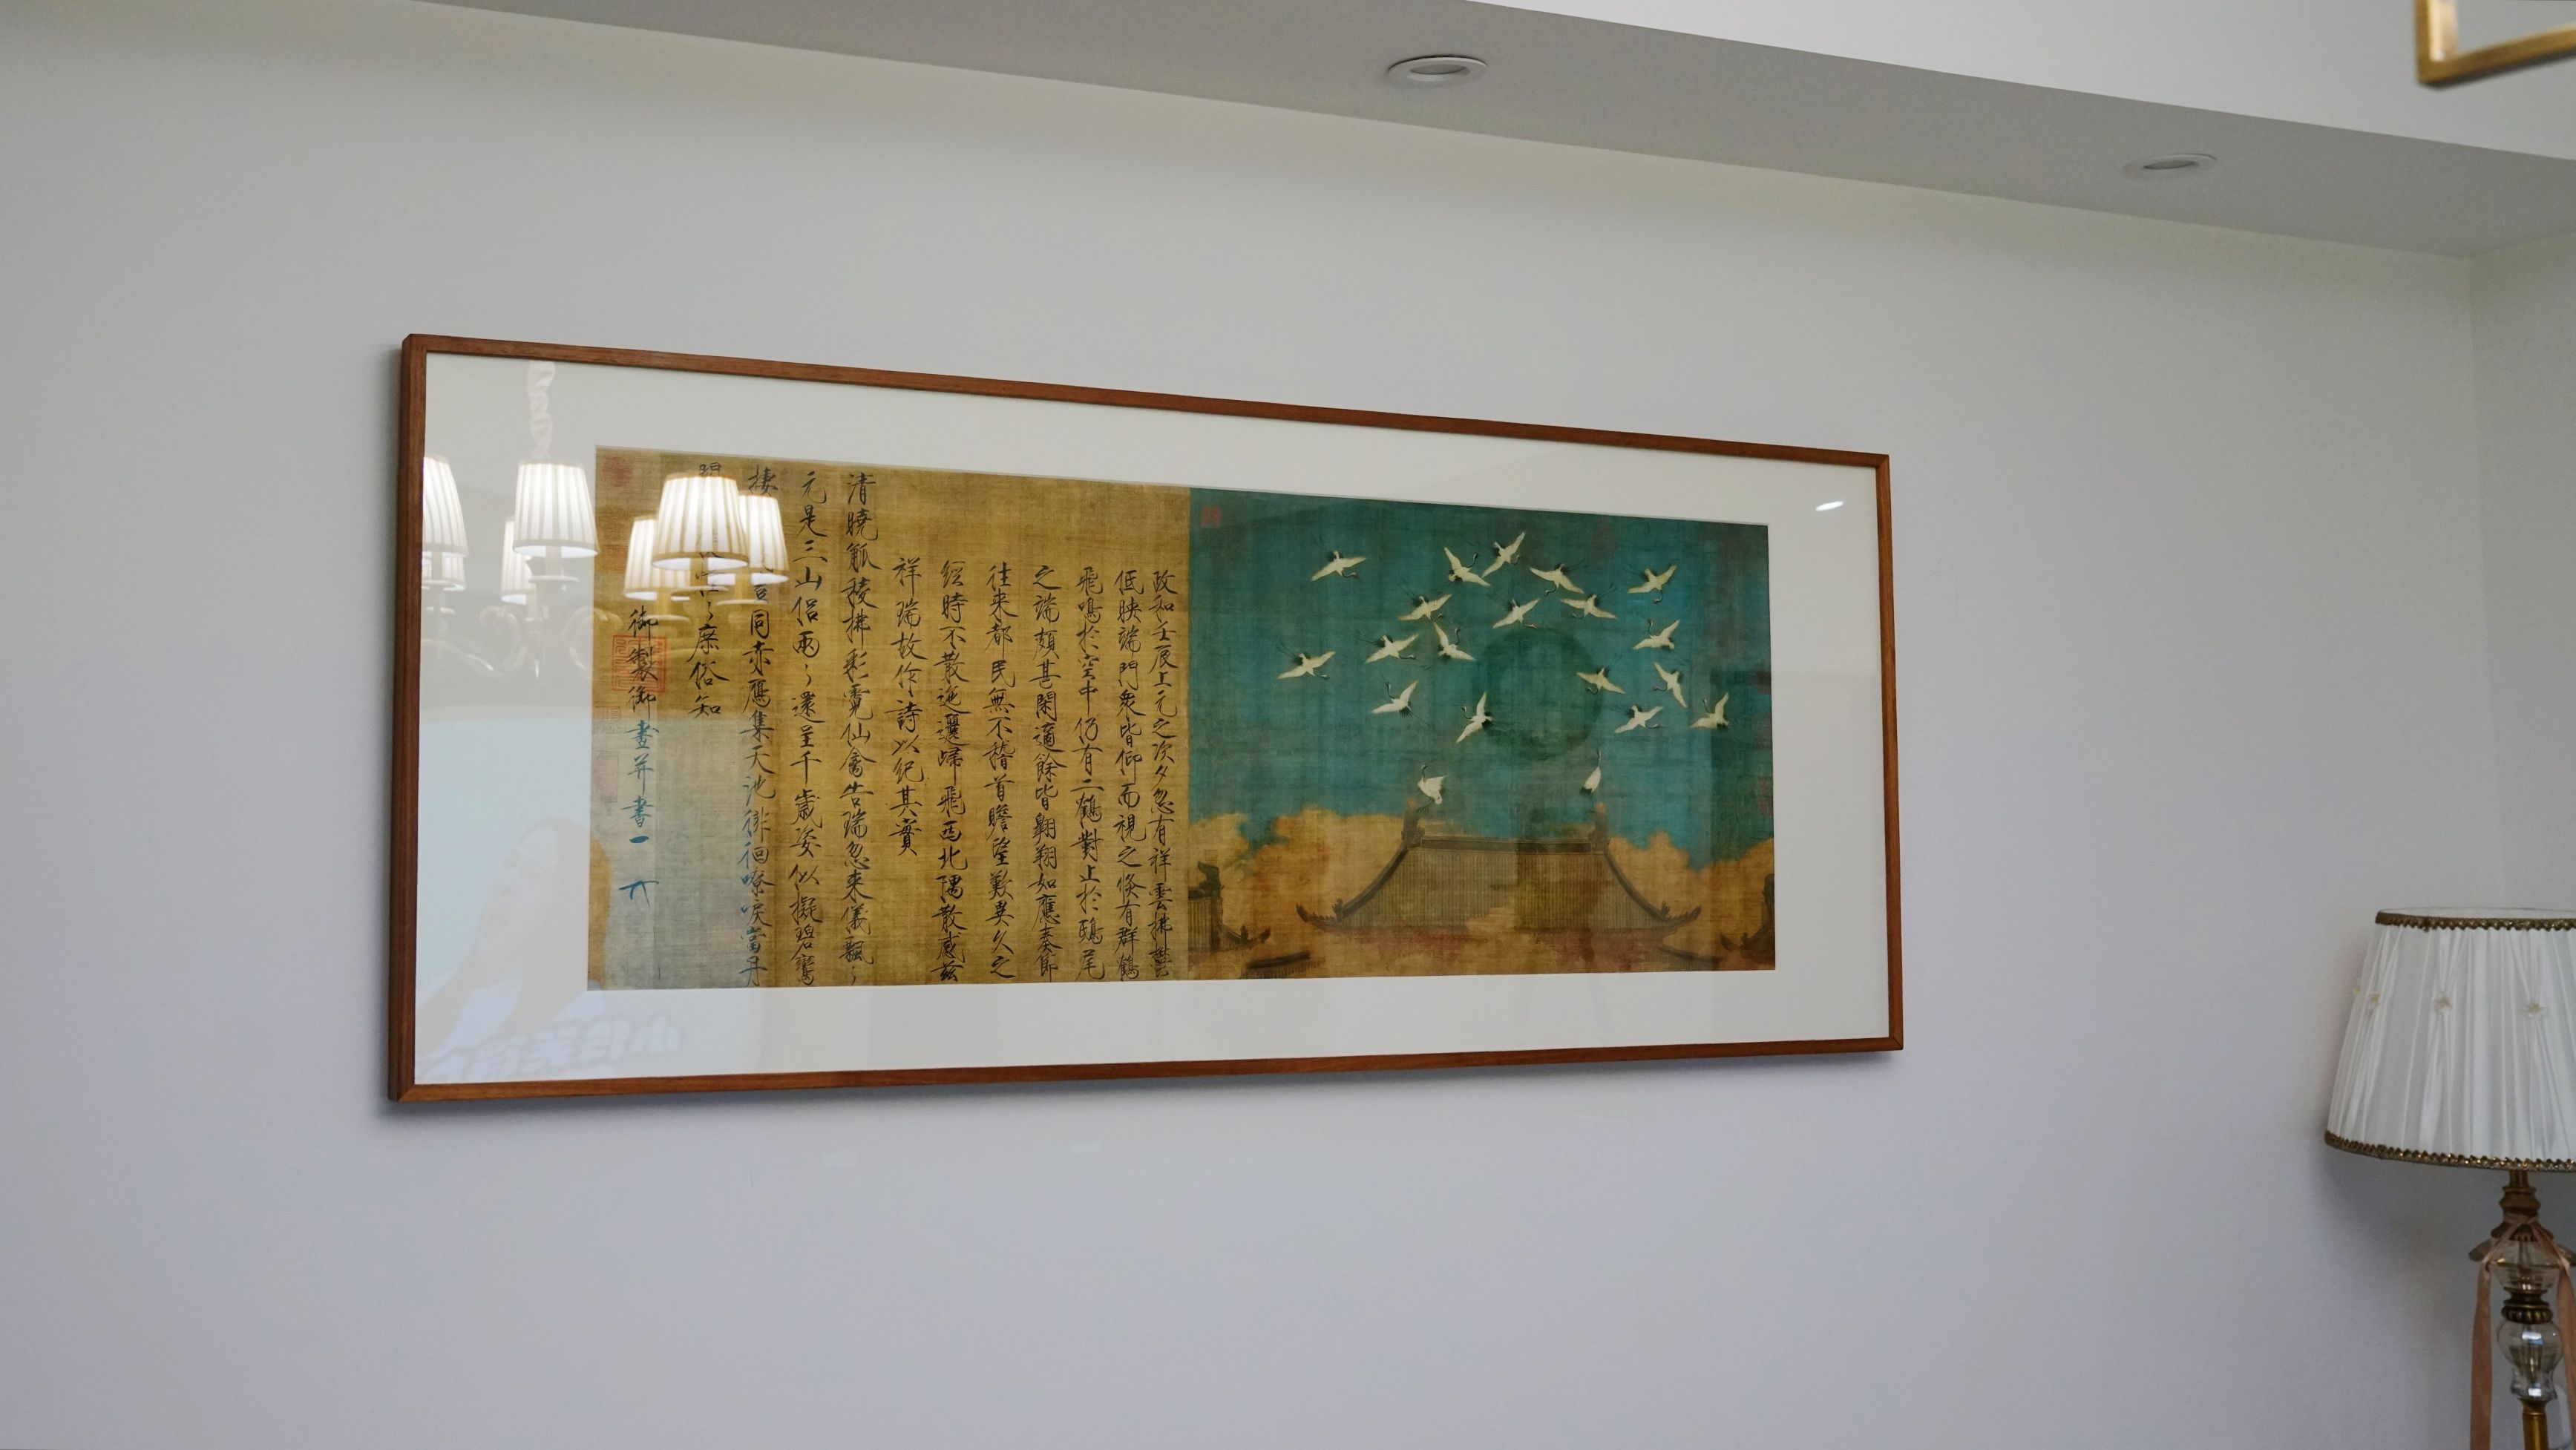 政和壬辰上元之次夕忽有祥雲拂鬱
低映端門衆皆仰而視之倏有群鶴
飛鳴於空中仍有二鶴對止於鴟尾
之端頗甚閑適餘皆翱翔如應奏節
往来都民無不稽首瞻望歎異久之
經時不散迤邐歸飛西北隅散感茲
祥瑞故作詩以紀其實
清曉觚稜拂彩霓仙禽告瑞忽来儀飄〻
元是三山侶兩〻還呈千歲姿似擬碧鸞
棲同赤鴈集天池徘徊嘹唳當丹
〻庶俗知
御製御畫并書